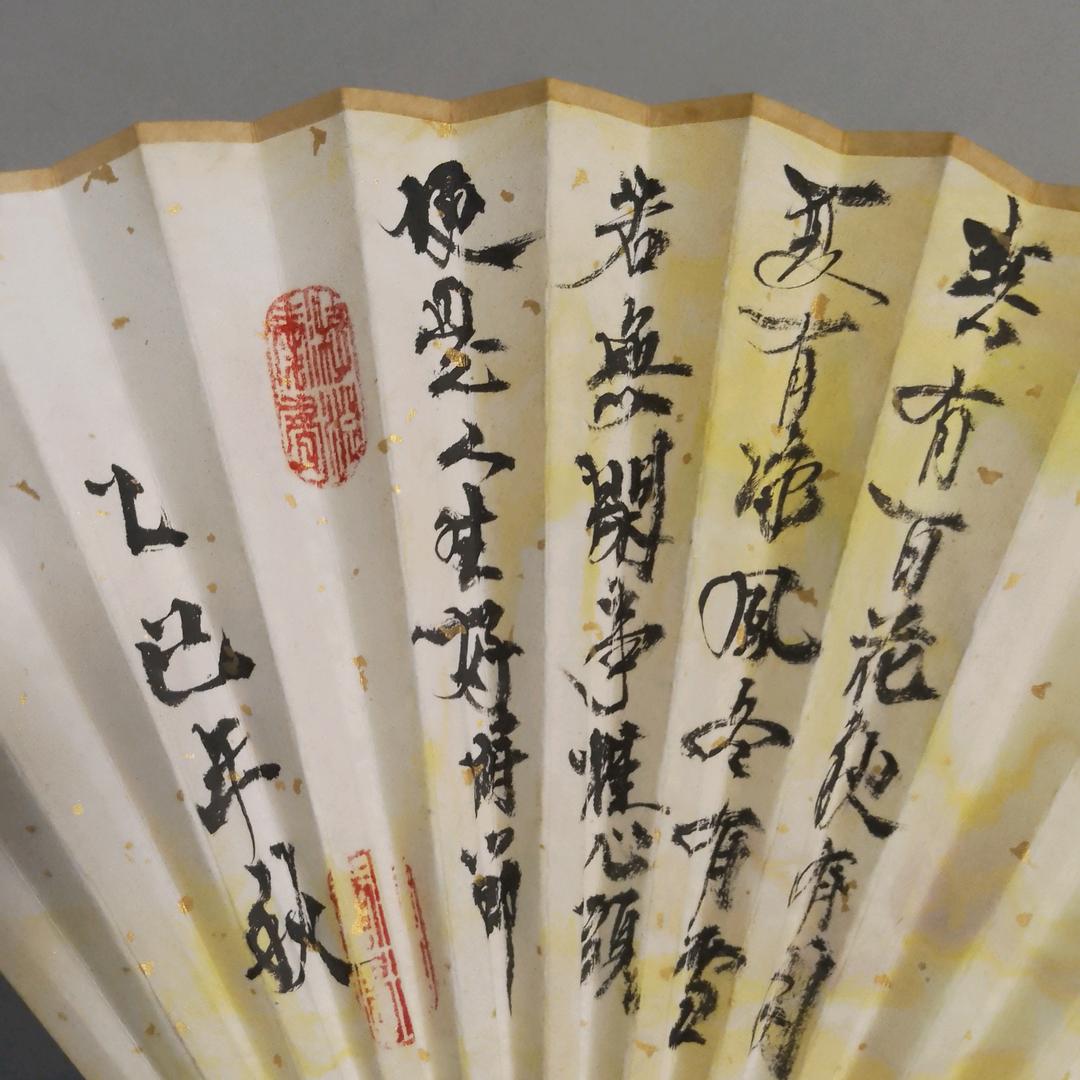 春有百花秋有月
夏有涼風冬有雪
若無閑事挂心頭
便是人生好時節
乙巳年秋